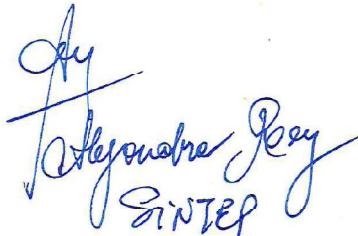 Alejandra Rey
SINTEP